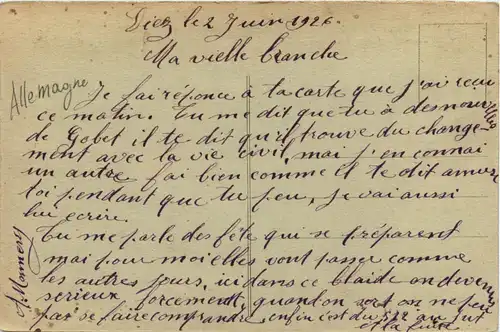 Diez le 2 Juin 1926.
Ma vielle branche
Allemagne
Je fai réponce à ta carte que j'ai recu
ce matin. Tu me dit que tu à des nouvelles
de Gobet il te dit qu'il trouve du change-
ment avec la vie civil, mai j'en connai
un autre fai bien comme il te dit amuse
toi pendant que tu peu, je vai aussi
lui ecrire.
Tu me parle des fête qui se préparent
mai pour moi elles vont passer comme
les autres jours, ici dans ce on devient
serieux forcement, quand on sort on ne peu
pas se faire comprendre, enfin c'est du 522 au jus
et la fuite